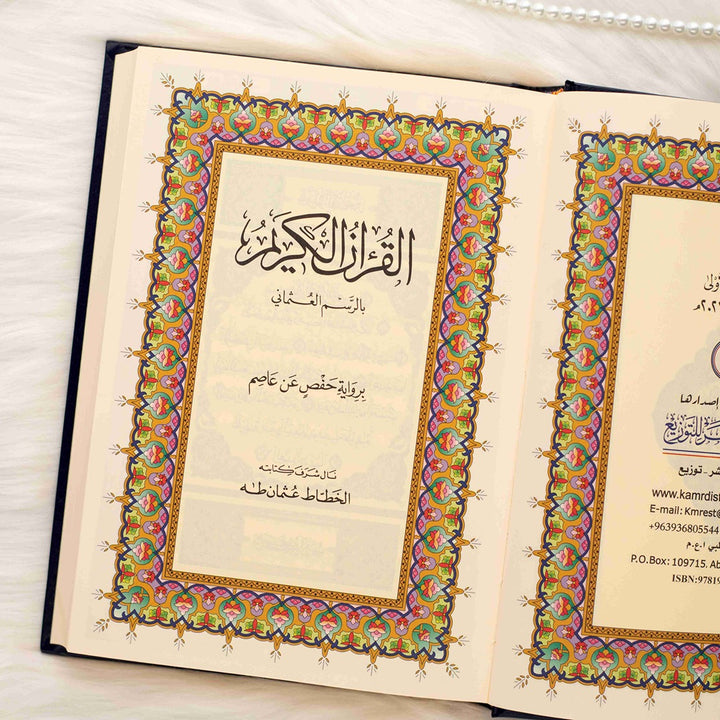 القُرْآنُ الْكَرِيمُ
بِالرَّسْمِ العُثْمَانِي
بِرِوَايَةِ حَفْصٍ عَنْ عَاصِم
نَالَ شَرَفَ كِتَابَتِهِ
الخَطَّاط عُثْمَان طٰهٰ
إصدارها
للتوزيع
توزيع
www.kamrdis
E-mail: Kmrest@
+96393680554
ا.ع.م
P.O.Box: 109715. Ab
ISBN:9781